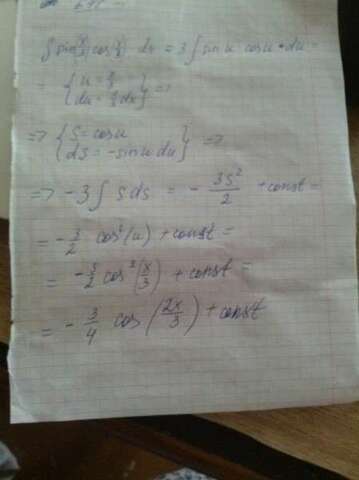 ∫ sin(x/3) cos(x/3) dx = 3 ∫ sin u cos u * du =
= { u = x/3
du = 1/3 dx } =>
=> { S = cos u
dS = -sin u du } =>
=> -3 ∫ S ds = - 3S²/2 + const =
= -3/2 cos²(u) + const =
= -3/2 cos²(x/3) + const =
= -3/4 cos(2x/3) + const